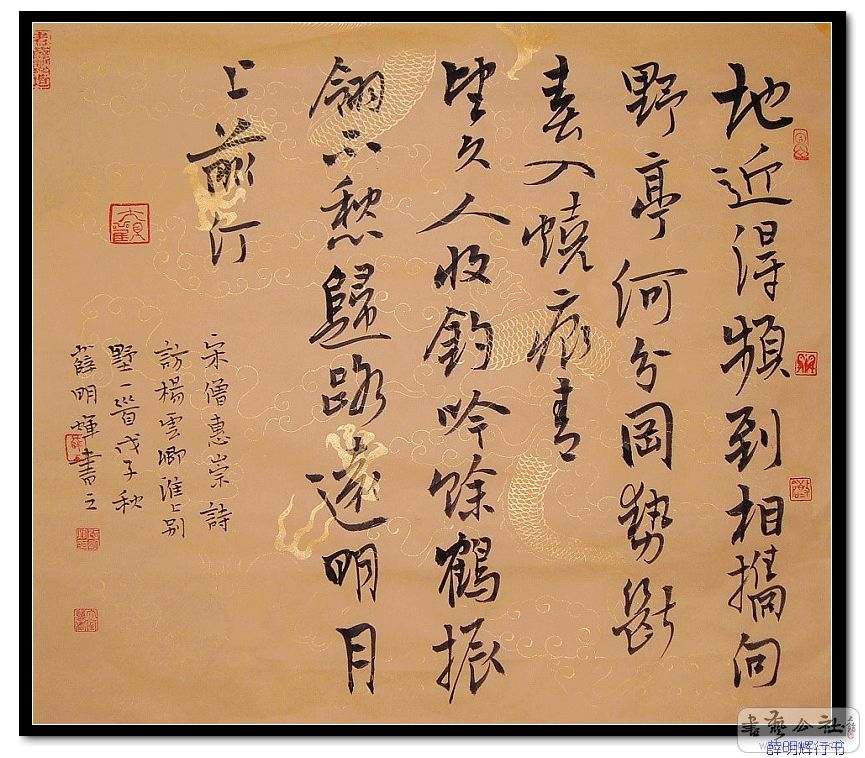 地近得頻到相攜向
野亭河分岡勢斷
春入燒痕青
望久人收釣吟餘鶴振
翎不愁歸路遠明月
上前汀
宋僧惠崇詩
訪楊雲卿淮上别
墅一首戊子秋
薛明輝書之
書藝公社
薛明辉行书